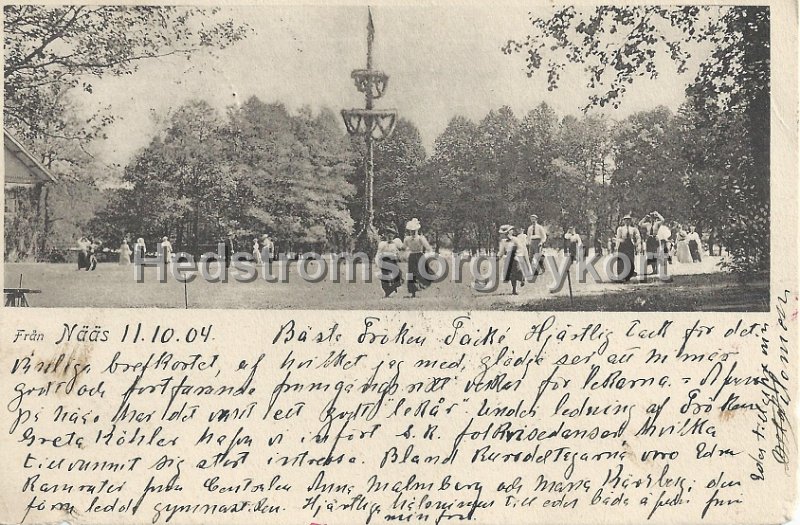 Hedstroms.org/vykort
Från Nääs 11.10.04. Bästa Fröken Tacké Hjärtlig tack för det
brefkortet, af hvilket jag med glädje ser att Ni mår
godt och fortfarande framgångsrikt verkar för lekarna. -
På Nääs har det varit ett godt "lekår". Under ledning af Fröken
Greta Köhler hafva vi infört s.k. folkvisedanser hvilka
tillvunnit sig stort intresse. Bland kursdeltagarna voro Edra
Kamrater från Centralen Anna Malmberg och Maria den
förra ledde gymnastiken. Hjärtliga hälsningar till eder båda från
min fru.
Eder tillgifne